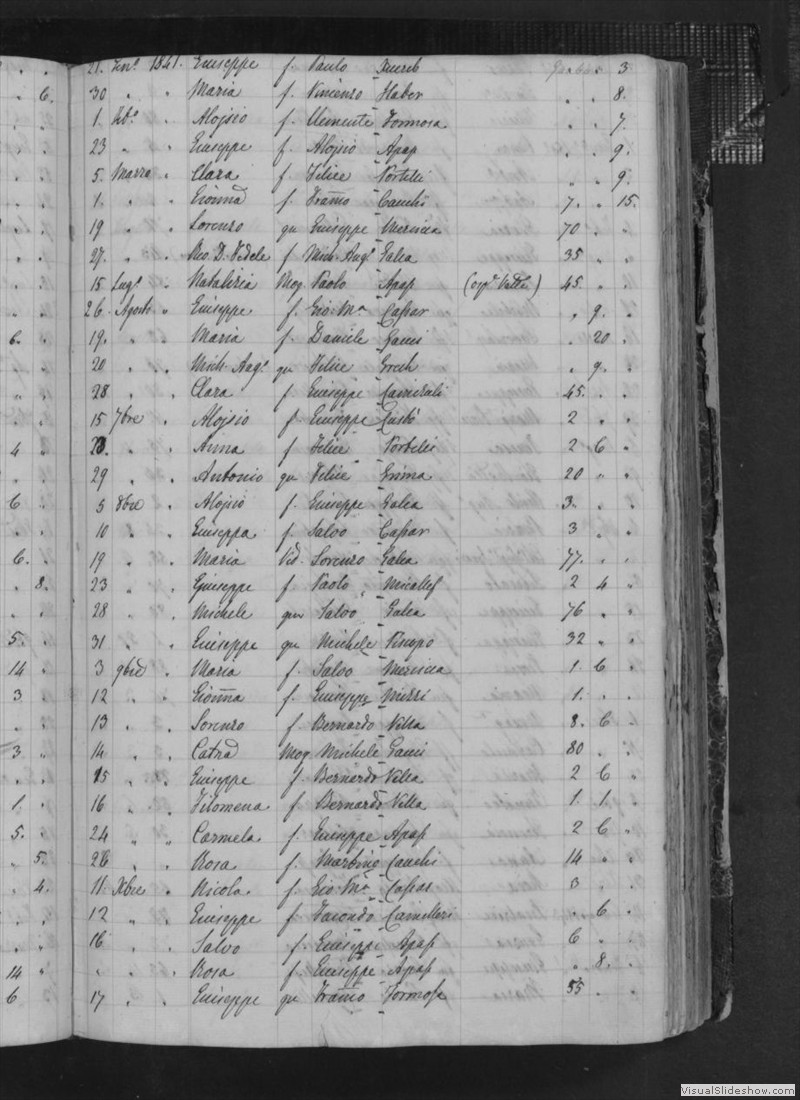 6.
6.
4
6
6.
8.
5.
14
3
3
1.
5.
5.
4.
14
6
21. Jenº 1841. Giuseppe f. Paolo 3
30 " " Maria f. Vincenzo Haber " " 8.
1. Febº " Aloisio f. Clemente Formosa " " 7.
23 " " Giuseppe f. Aloisio Apap " " 9.
5. Marzo " Clara f. Felice Portelli " " 9.
1. " " Gionna f. Franco Cauchi 7. " 15.
19 " " Lorenzo qu Giuseppe Mercieca 70 " "
27. " " Rev. D. Fedele f. Mich. Angº Galea 35 " "
15 Lugº " Natalizia Mog. Paolo Apap 45. " "
26 Agosto " Giuseppe f. Gio: Mª Caspar " 9. "
19. " " Maria f. Daniele Gauci " 20 "
20 " " Mich. Angº qu Felice Grech " 9. "
28 " " Clara f Giuseppe Camilleri 45. " "
15 7bre " Aloisio f Giuseppe 2 " "
20. " " Anna f Felice Portelli 2 6 "
29 " " Antonio qu Felice Grima 20 " "
5 8bre " Aloisio f. Giuseppe Galea 3. " "
10 " " Giuseppa f. Salvo Caspar 3 " "
19 " " Maria Vid. Lorenzo Galea 77. " "
23 " " Giuseppe f. Paolo Micallef 2 4 "
28 " " Michele qu Salvo Galea 76 " "
31 " " Giuseppe qu Michele 32 " "
3 9bre " Maria f. Salvo Mercieca 1. 6 "
12 " " Gionna f. Giuseppe Mizzi 1. " "
13 " " Lorenzo f Bernardo Vella 8. 6 "
14 " " Catna Mog Michele Gauci 80 " "
15 " " Giuseppe f. Bernardo Vella 2 6 "
16 " " Filomena f Bernardo Vella 1. 1. "
24 " " Carmela f. Giuseppe Apap 2 6 "
26 " " Rosa f. Martino Cauchi 14 " "
11. Xbre " Nicola. f. Gio Mª Caspar 3 " "
12 " " Giuseppe f Camilleri " 6 "
16 " " Salvo f. Giuseppe Apap 6 " "
" " " Rosa f. Giuseppe Apap " 8. "
17 " " Giuseppe qu Franco Formosa 55 " "
VisualSlideshow.com